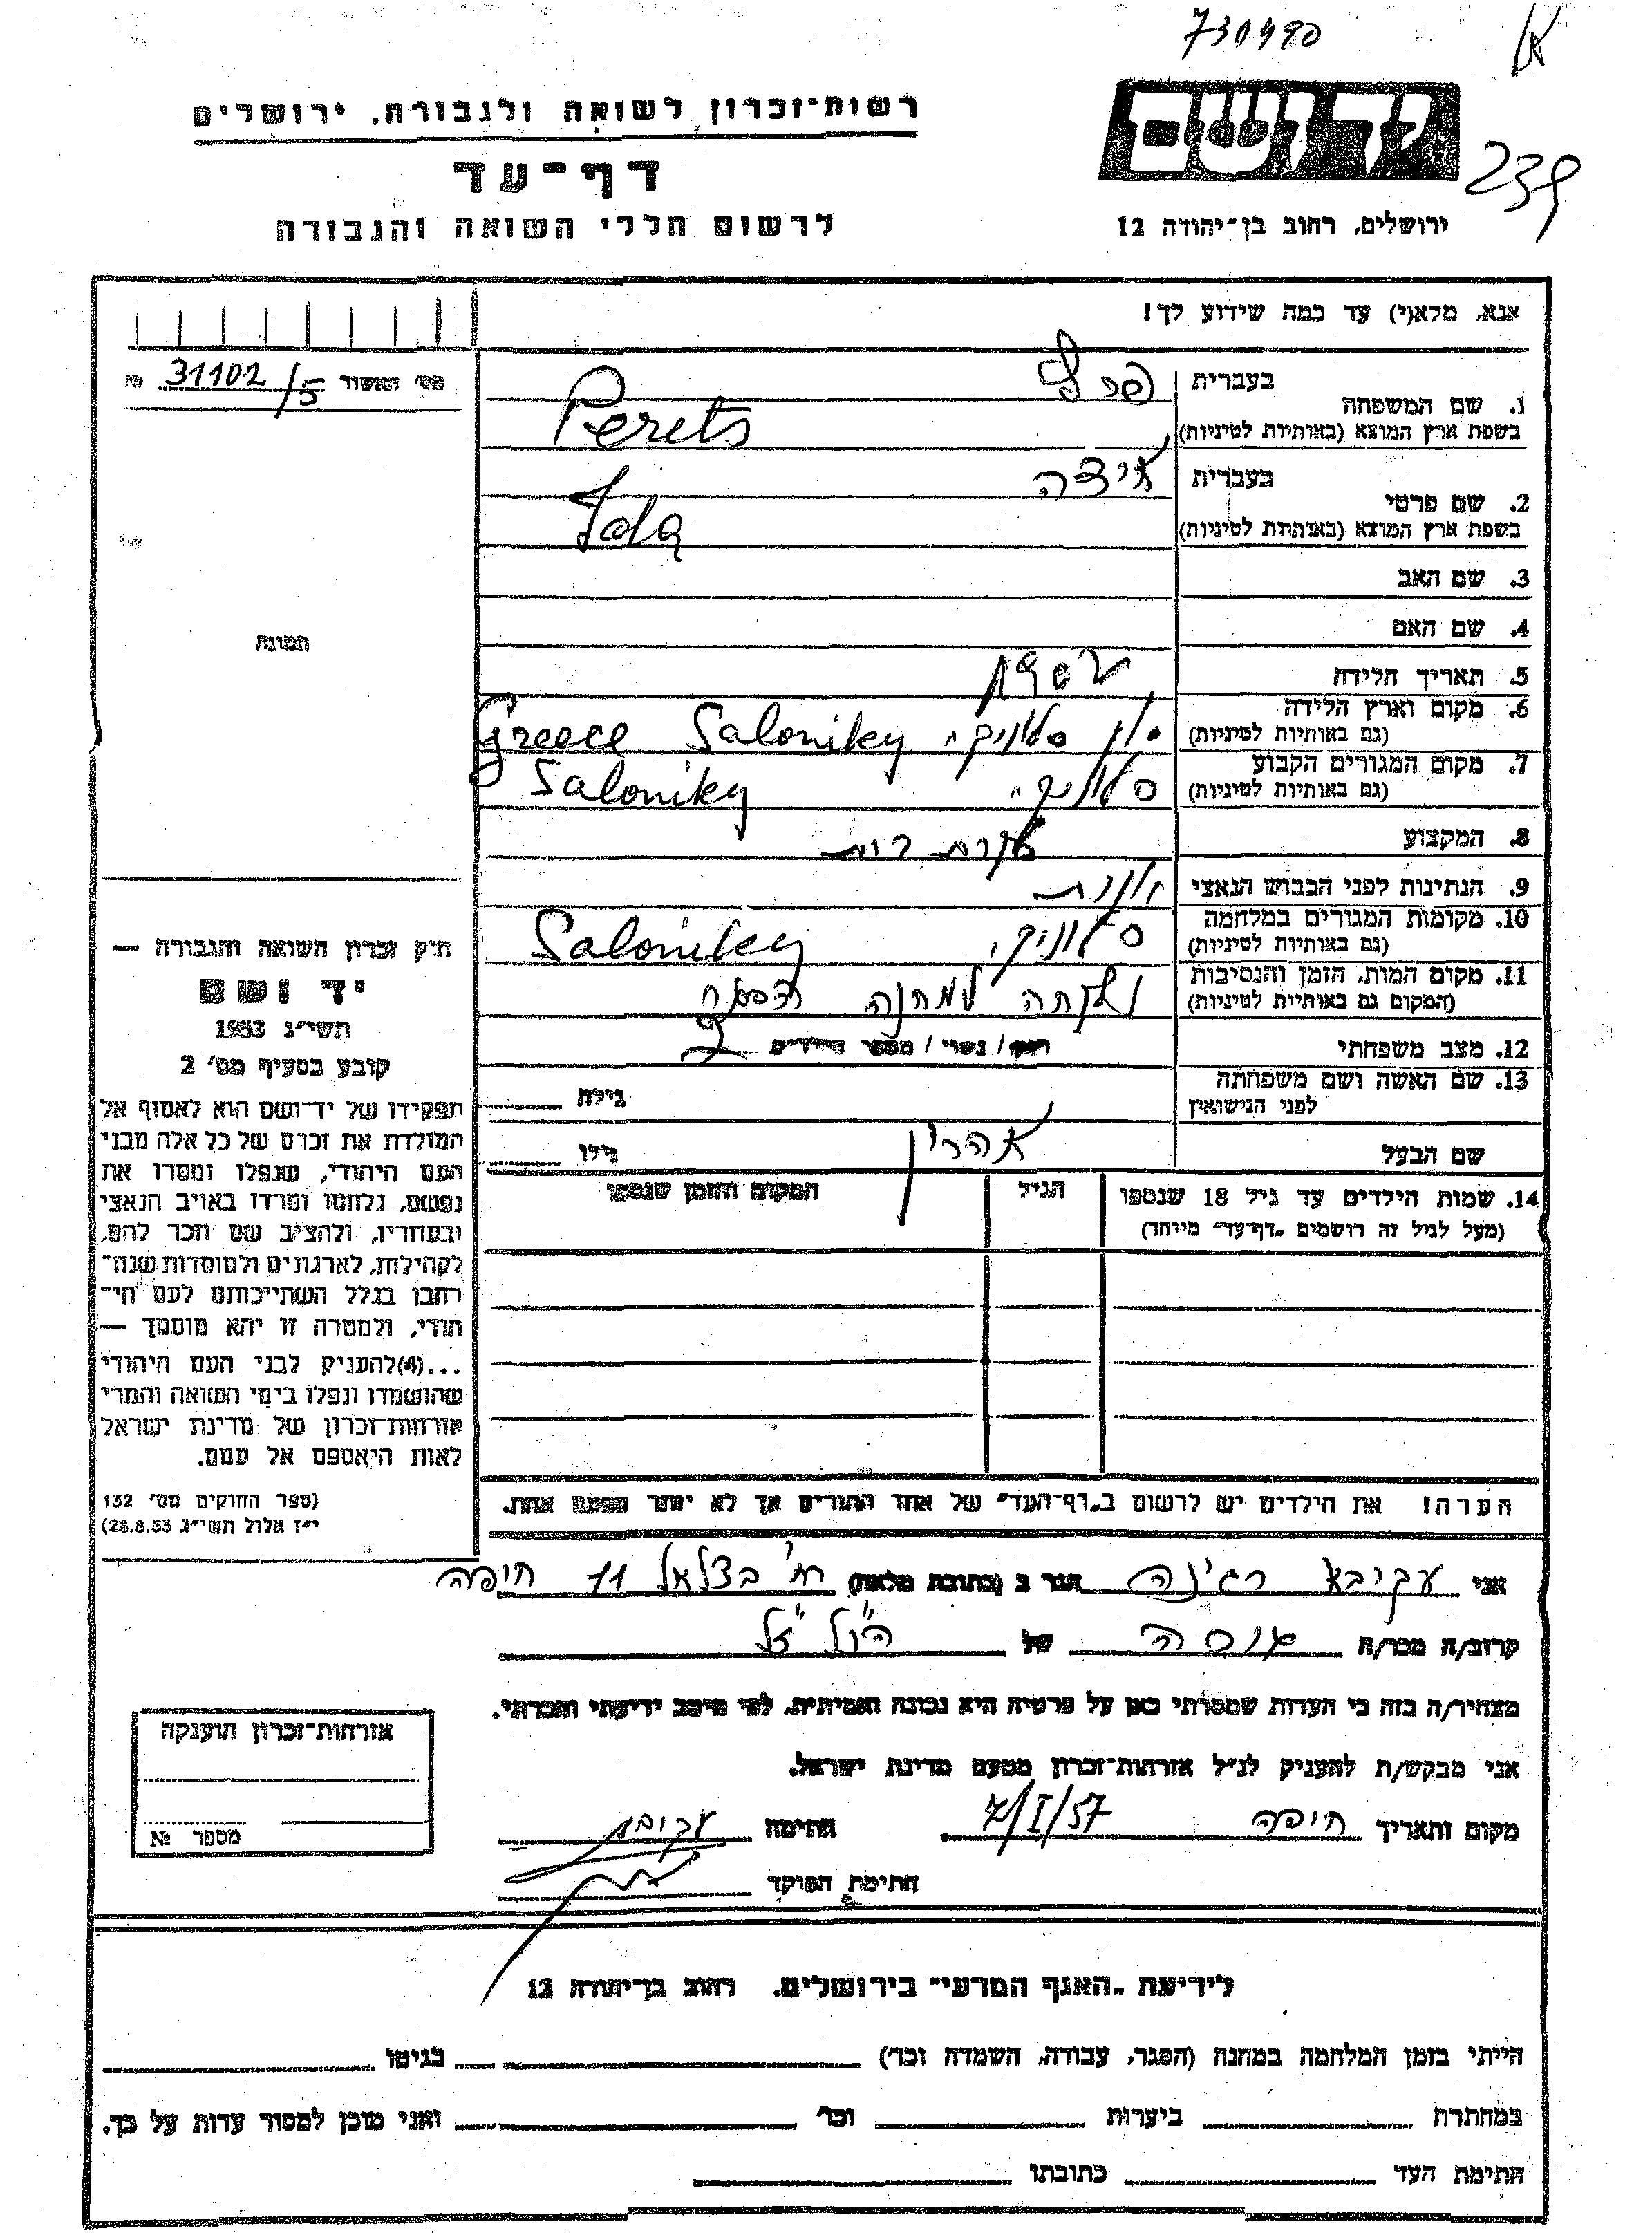 730490
א
רשות-זכרון לשואה ולגבורה, ירושלים
ידושם
239
דף-עד
לרשום חללי השואה והגבורה
ירושלים, רחוב בן-יהודה 12
אנא, מלא(י) עד כמה שידוע לך!
31102/5 №
בעברית פרץ
1. שם המשפחה
בשפת ארץ המוצא (באותיות לטיניות) Perets
בעברית אידה
2. שם פרטי
בשפת ארץ המוצא (באותיות לטיניות) Ida
3. שם האב
4. שם האם
תמונה
5. תאריך הלידה
6. מקום וארץ הלידה
(גם באותיות לטיניות) יון סלוניקי Saloniky Greece
7. מקום המגורים הקבוע
(גם באותיות לטיניות) סלוניקי Saloniky
8. המקצוע עקרת בית
9. הנתינות לפני הכבוש הנאצי יונית
10. מקומות המגורים במלחמה
(גם באותיות לטיניות) סלוניקי Saloniky
11. מקום המות, הזמן והנסיבות
(המקום גם באותיות לטיניות) נלקחה למחנה הסגר
12. מצב משפחתי רווק / נשוי / מספר הילדים 2
13. שם האשה ושם משפחתה
לפני הנישואין גילה
שם הבעל אהרון גילו
14. שמות הילדים עד גיל 18 שנספו הגיל המקום והזמן שנספו
(מעל לגיל זה רושמים „דף-עד" מיוחד)
הערה! את הילדים יש לרשום ב„דף-העד" של אחד ההורים אך לא יותר מפעם אחת.
חיק זכרון השואה והגבורה —
יד ושם
תשי"ג 1953
קובע בסעיף מס' 2
תפקידו של יד-ושם הוא לאסוף אל
המולדת את זכרם של כל אלה מבני
העם היהודי, שנפלו ומסרו את
נפשם, נלחמו ומרדו באויב הנאצי
ובעוזריו, ולהציב שם וזכר להם,
לקהילות, לארגונים ולמוסדות שנח-
רבו בגלל השתייכותם לעם הי-
הודי, ולמטרה זו יהא מוסמך —
...(4)להעניק לבני העם היהודי
שהושמדו ונפלו בימי השואה והמרי
אזרחות-זכרון של מדינת ישראל
לאות היאספם אל עמם.
(ספר החוקים מס' 132
י"ז אלול תשי"ג 28.8.53)
אני עקיבא רגינה הגר ב (כתובת מלאה) רח' בצלאל 11 חיפה
קרוב/ה מכר/ה של הנ"ל ז"ל
מצהיר/ה בזה כי העדות שמסרתי כאן על פרטיה היא נכונה ואמיתית, לפי מיטב ידיעתי והכרתי.
אני מבקש/ת להעניק לנ"ל אזרחות-זכרון מטעם מדינת ישראל.
מקום ותאריך חיפה 7/I/57 חתימה עקיבא
חתימת הפוקד
אזרחות-זכרון תוענקה
מספר №
לידיעת „האגף המדעי" בירושלים, רחוב בן-יהודה 12
הייתי בזמן המלחמה במחנה (הסגר, עבודה, השמדה וכו') בגיטו
במחתרת ביערות וכו' ואני מוכן למסור עדות על כך.
חתימת העד כתובתו